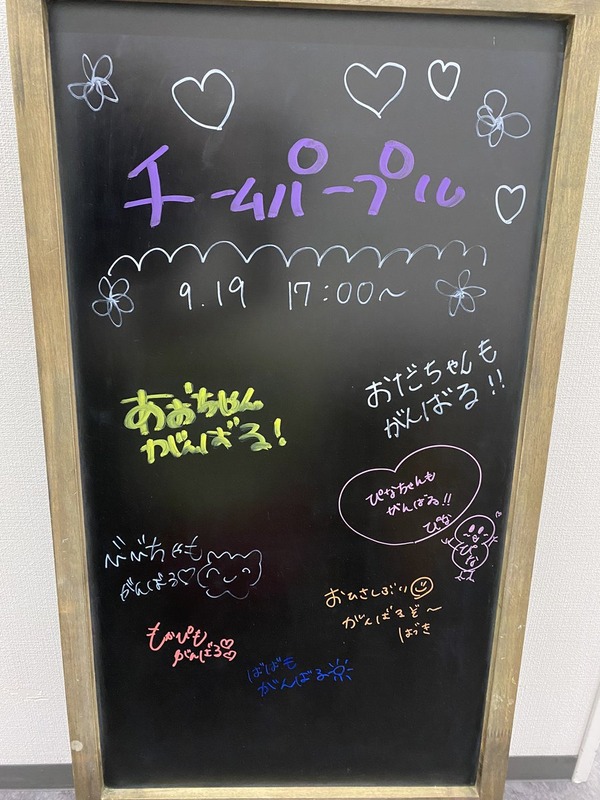 チームパープル
9.19 17:00〜
おだちゃんも
がんばる!!
あおちゃん
がんばる!
ぴなちゃんも
がんばる!!
ぴな
ぴな
がんばる♡
おひさしぶり☺
がんばるぞ〜
はづき
もかぴも
がんばる♡♡
ばばも
がんばる